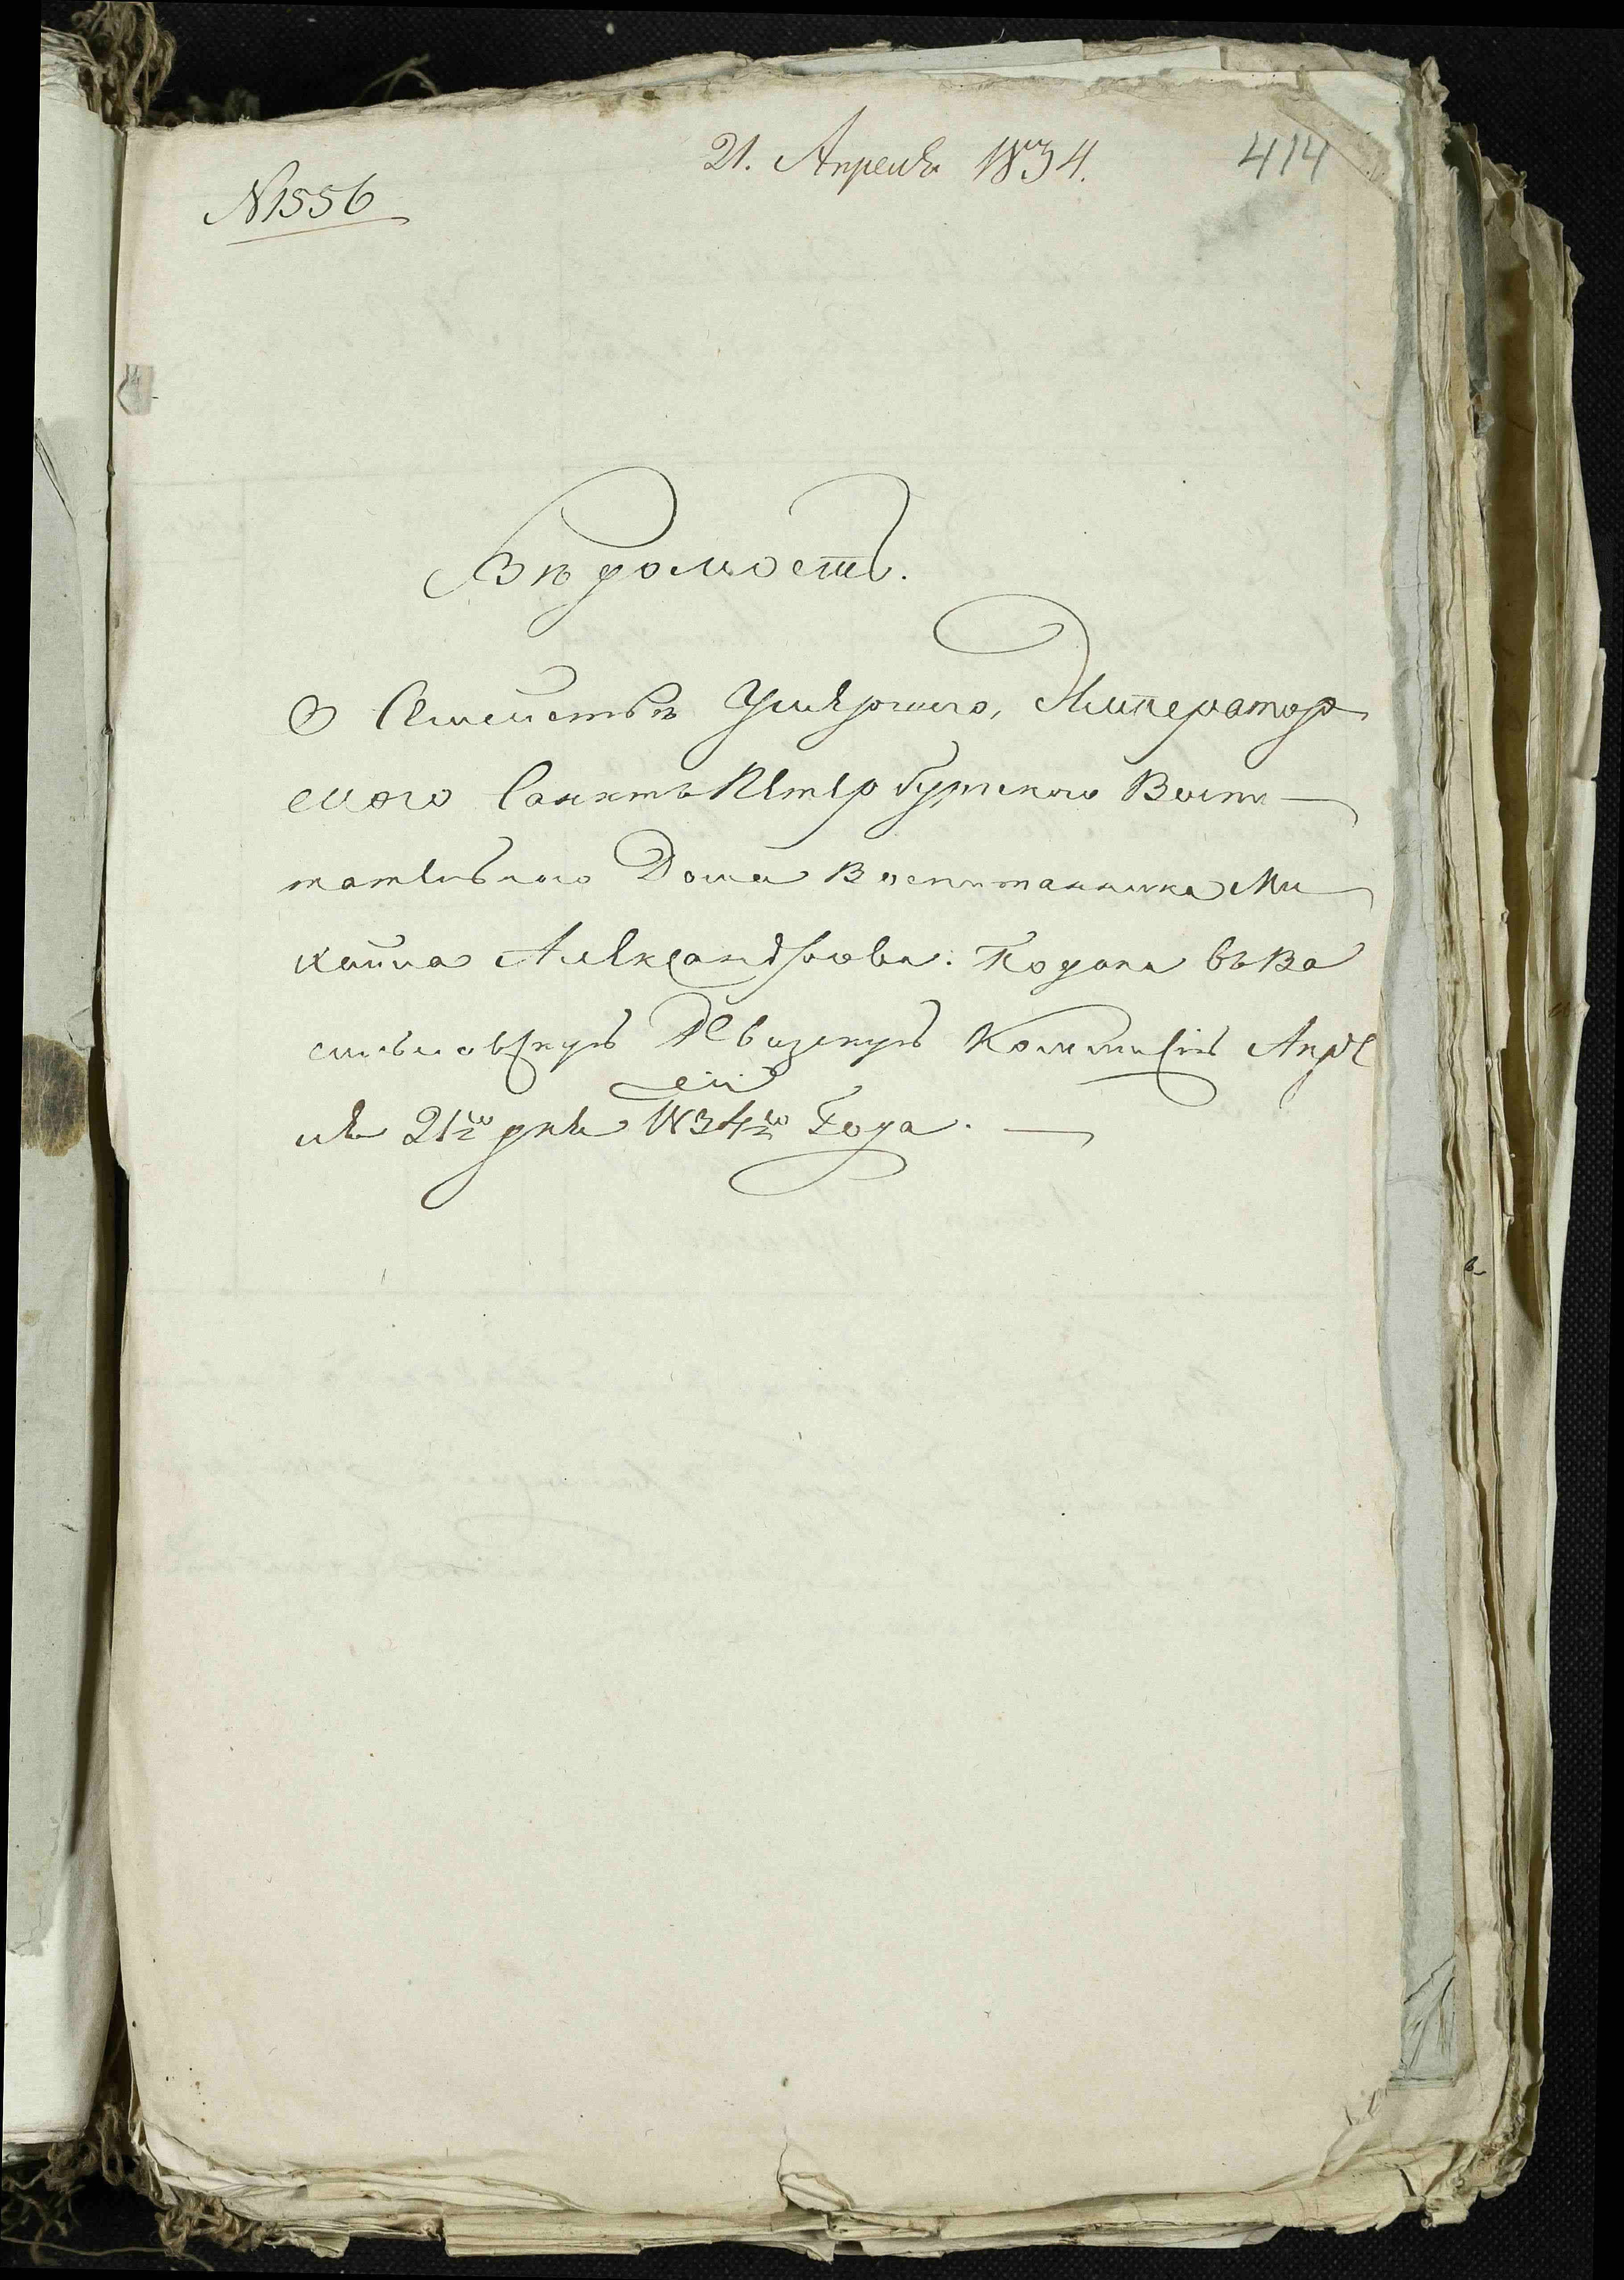 21. Апреля 1834.
414
N 1556
Ведомость.
О Семействе Умершаго, Император
скаго Санктъ Петербургскаго Воспи
тательнаго Дома Воспитанника Ми
хайла Александрова. Подана въ Ва
сильковскую Ревизскую Коммисію Апре
ля 21го дня 1834го Года.